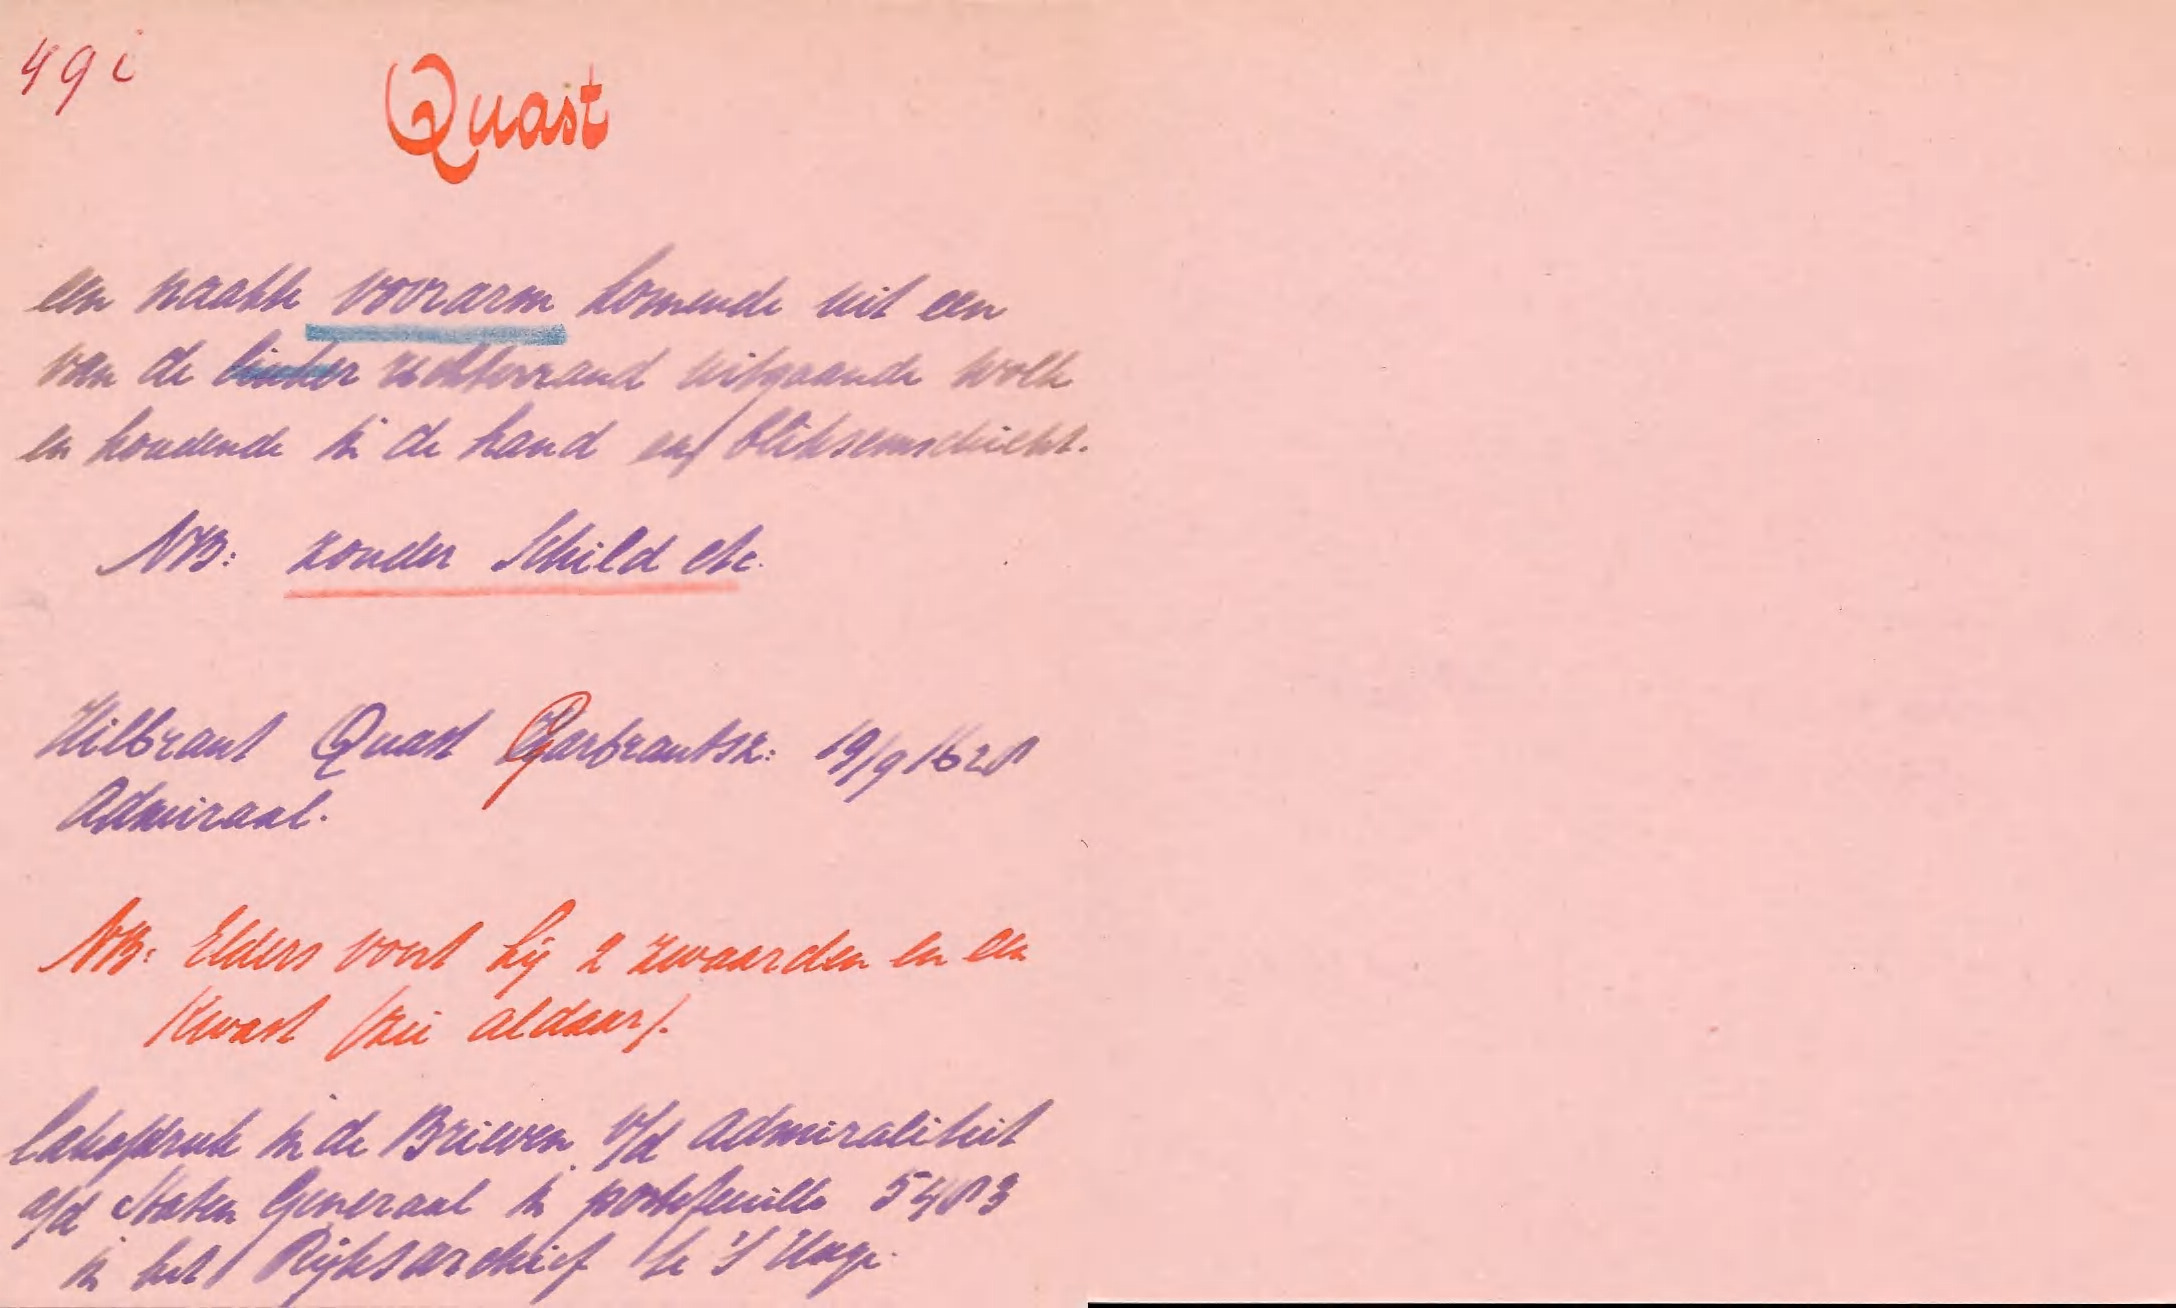 49 i
Quast
een naakte voorarm komende uit een
van de linker rechterrand uitgaande wolk
en houdende in de hand een bliksemschicht.
NB: zonder Schild etc.
Hilbrant Quast Gerbrantsz: 19/9 1628
Admiraal.
NB: Elders voert hij 2 zwaarden en een
Kwast (zie aldaar).
lakafdruk in de Brieven v/d Admiraliteit
a/d Staten Generaal in portefeuille 5483
in het Rijksarchief te 's Hage.